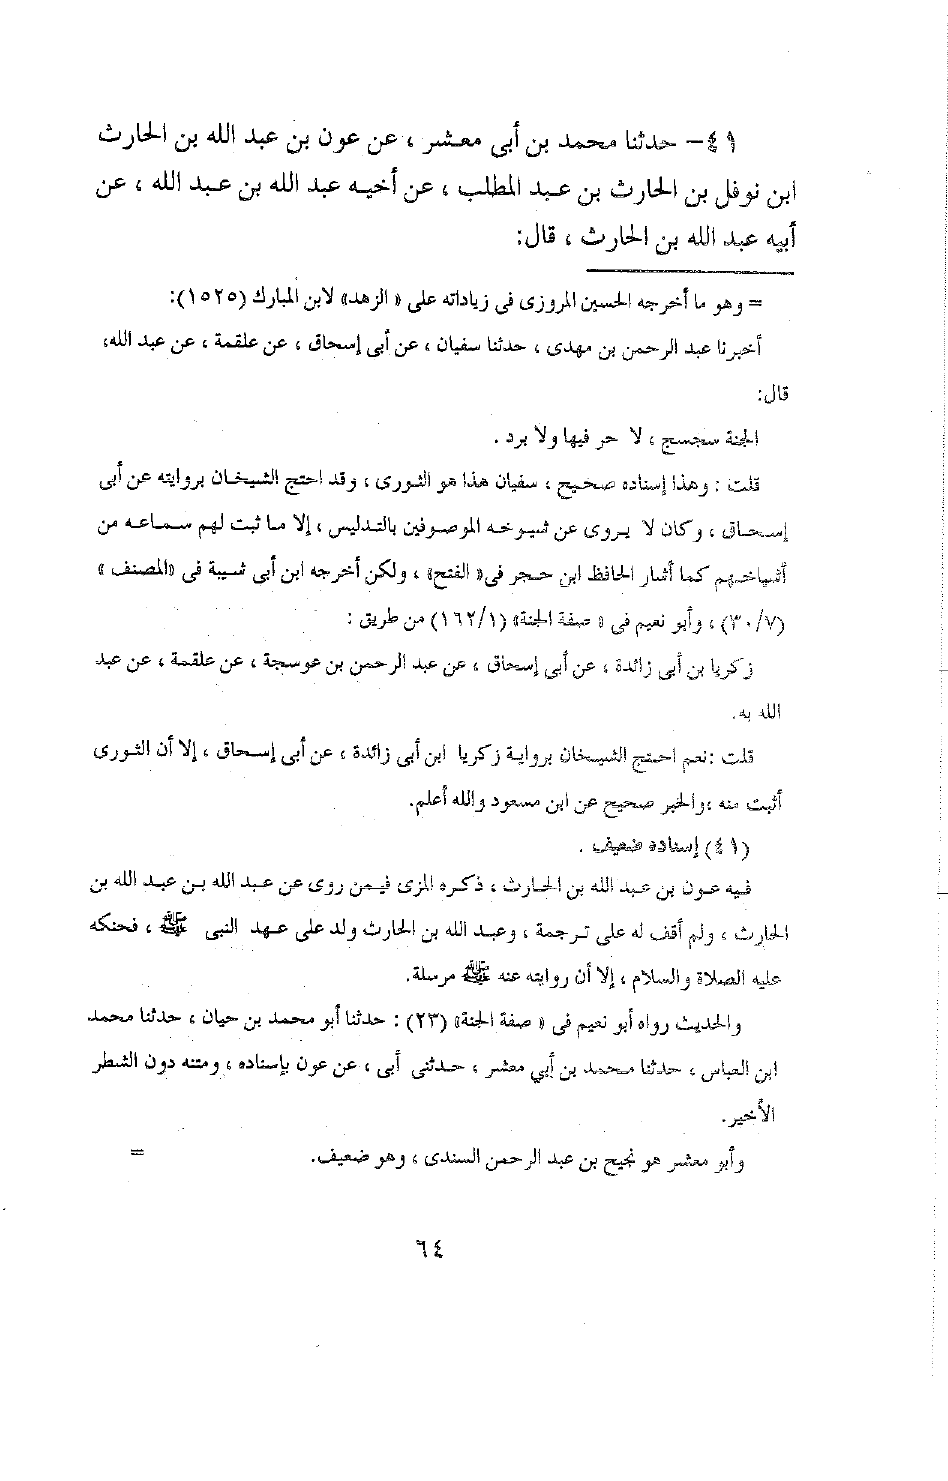 ٤١- حدثنا محمد بن أبى معشر ، عن عون بن عبد الله بن الحارث
ابن نوفل بن الحارث بن عبد المطلب ، عن أخيه عبد الله بن عبد الله ، عن
أبيه عبد الله بن الحارث ، قال:
= وهو ما أخرجه الحسين المروزى فى زياداته على « الزهد» لابن المبارك (١٥٢٥):
أخبرنا عبد الرحمن بن مهدى ، حدثنا سفيان ، عن أبى إسحاق ، عن علقمة ، عن عبد الله،
قال:
الجنة سجسج ، لا حر فيها ولا برد .
قلت : وهذا إسناده صحيح ، سفيان هذا هو الثورى ، وقد احتج الشيخان بروايته عن أبى
إسحاق ، وكان لا يروى عن شيوخه الموصوفين بالتدليس ، إلا ما ثبت لهم سماعه من
أشياخهم كما أشار الحافظ ابن حجر فى« الفتح» ، ولكن أخرجه ابن أبى شيبة فى «المصنف »
(٣٠/٧) ، وأبو نعيم فى « صفة الجنة» (١٦٢/١) من طريق :
زكريا بن أبى زائدة ، عن أبى إسحاق ، عن عبد الرحمن بن عوسجة ، عن علقمة ، عن عبد
الله به.
قلت :نعم احتج الشيخان برواية زكريا ابن أبى زائدة ، عن أبى إسحاق ، إلا أن الثورى
أثبت منه ،والخبر صحيح عن ابن مسعود والله أعلم.
(٤١) إسناده ضعيف .
فيه عون بن عبد الله بن الحارث ، ذكره المزى فيمن روى عن عبد الله بن عبد الله بن
الحارث ، ولم أقف له على ترجمة ، وعبد الله بن الحارث ولد على عهد النبى ﷺ ، فحنكه
عليه الصلاة والسلام ، إلا أن روايته عنه ﷺ مرسلة.
والحديث رواه أبو نعيم فى « صفة الجنة» (٢٣) : حدثنا أبو محمد بن حيان ، حدثنا محمد
ابن العباس ، حدثنا محمد بن أبي معشر ، حدثنى أبى ، عن عون بإسناده ، ومتنه دون الشطر
الأخير.
وأبو معشر هو نجيح بن عبد الرحمن السندى ، وهو ضعيف. =
٦٤